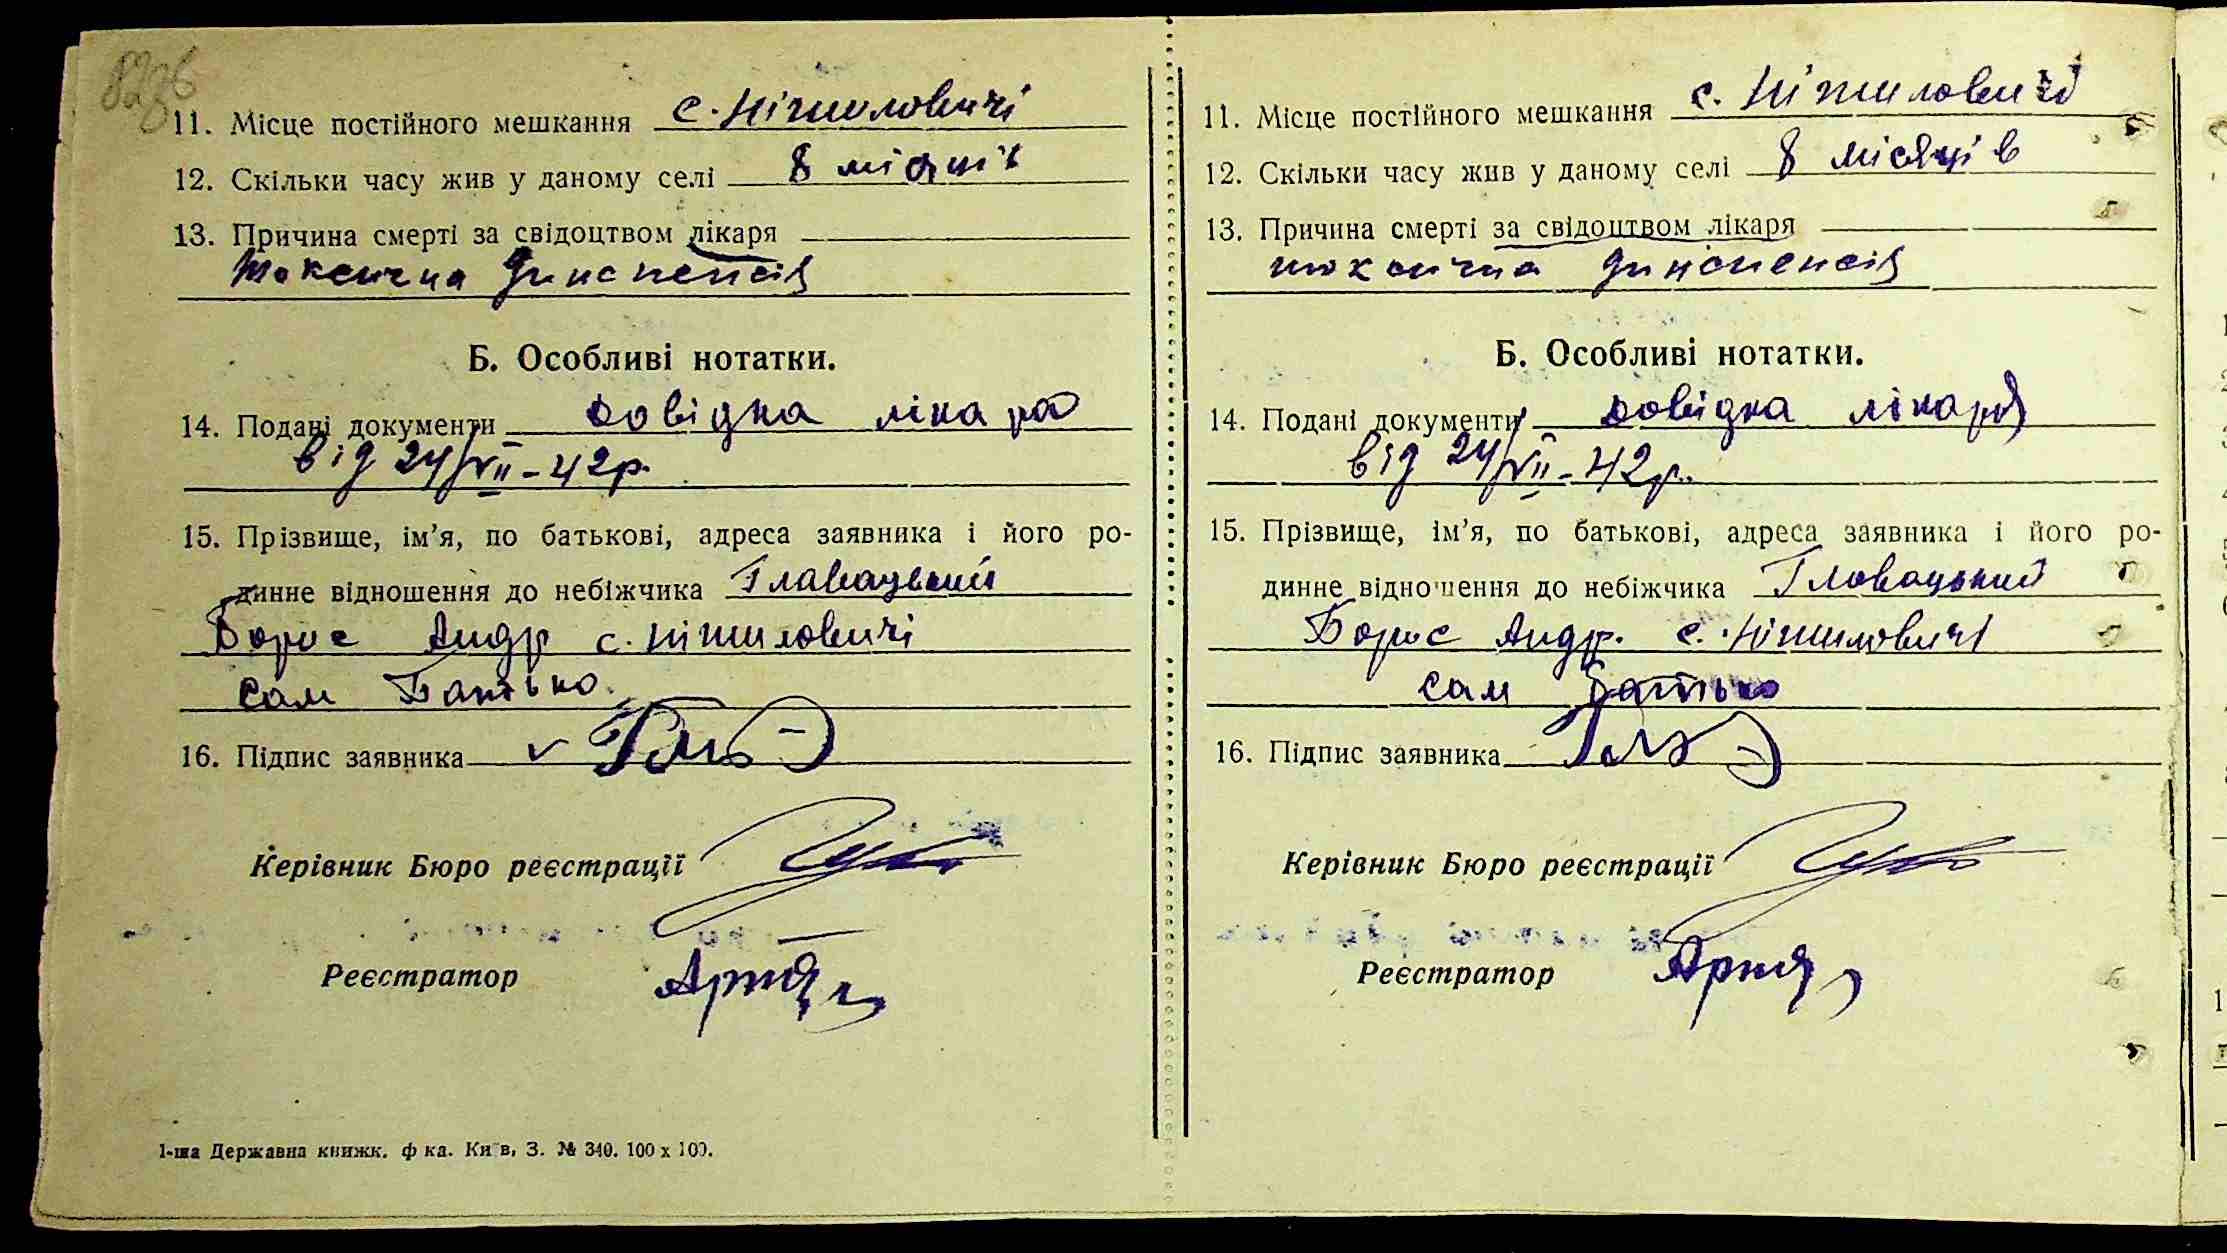 8226
11. Місце постійного мешкання с. Ніжиловичі
12. Скільки часу жив у даному селі 8 місяців
13. Причина смерті за свідоцтвом лікаря
токсична диспепсія
Б. Особливі нотатки.
14. Подані документи довідка лікаря
від 24/VII-42р.
15. Прізвище, ім’я, по батькові, адреса заявника і його ро-
динне відношення до небіжчика Главацький
Борис Андр с. Ніжиловичі
сам Батько.
16. Підпис заявника
Керівник Бюро реєстрації
Реєстратор
1-ша Державна книжк. ф-ка. Київ, З. № 340. 100 х 100.
11. Місце постійного мешкання с. Ніжиловичі
12. Скільки часу жив у даному селі 8 місяців
13. Причина смерті за свідоцтвом лікаря
токсична диспепсія
Б. Особливі нотатки.
14. Подані документи довідка лікаря
від 24/VII-42р.
15. Прізвище, ім’я, по батькові, адреса заявника і його ро-
динне відношення до небіжчика Главацький
Борис Андр. с. Ніжиловичі
сам Батько
16. Підпис заявника
Керівник Бюро реєстрації
Реєстратор